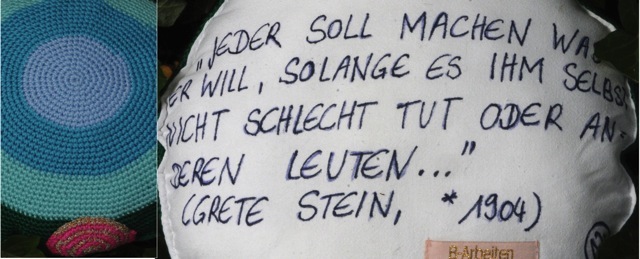 "JEDER SOLL MACHEN WAS
ER WILL, SOLANGE ES IHM SELBST
NICHT SCHLECHT TUT ODER AN-
DEREN LEUTEN..."
(GRETE STEIN, *1904)
B-Arbeiten